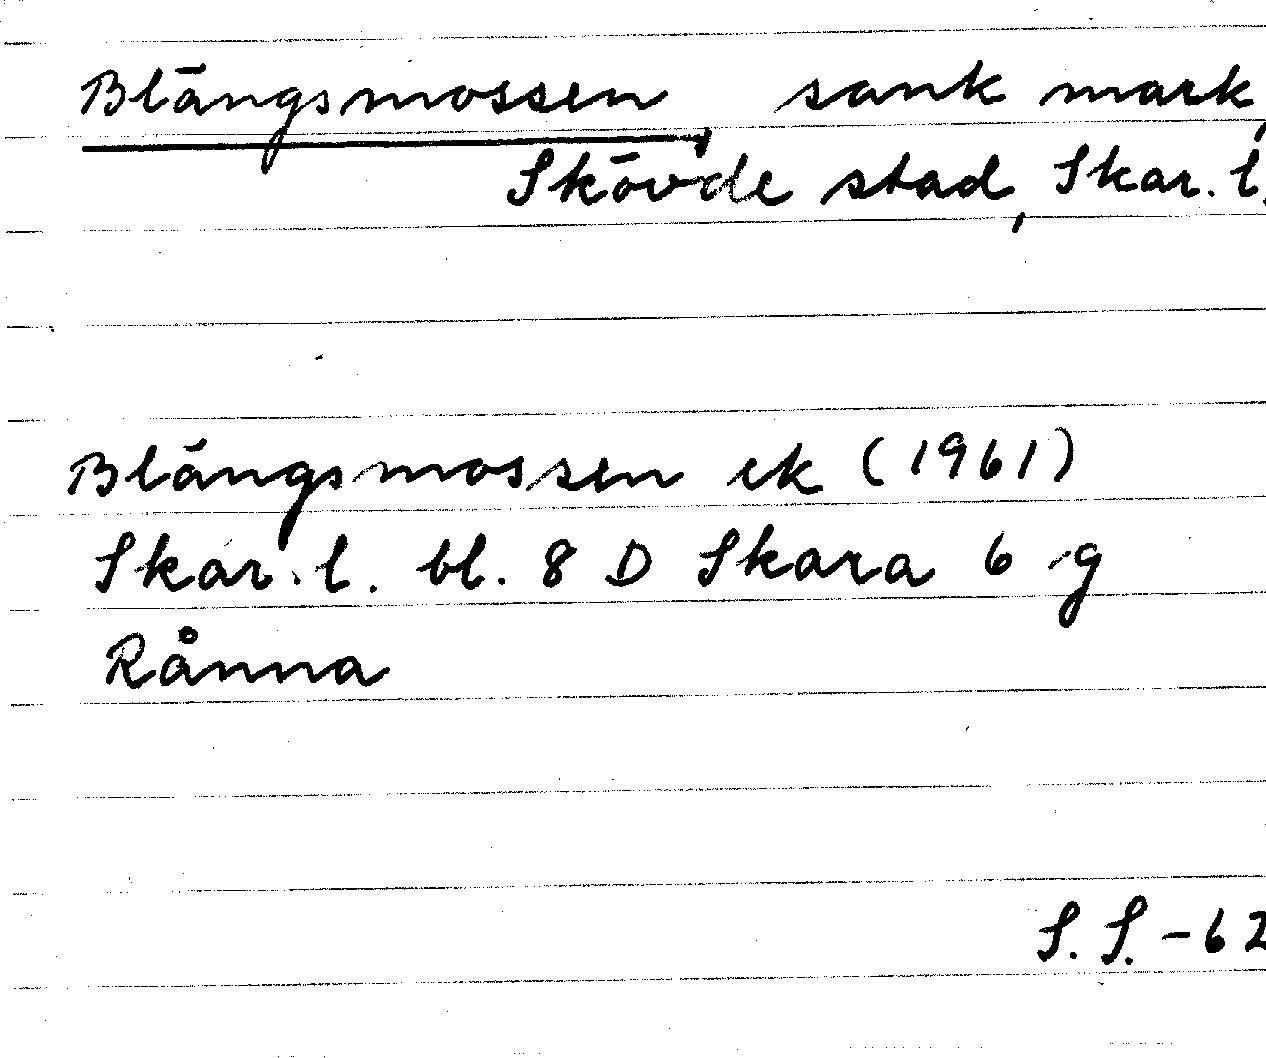 Blängsmossen, sank mark,
Skövde stad, Skar. l.
Blängsmossen ek (1961)
Skar. l. bl. 8 D Skara 6 g
Rånna
S. S. -62